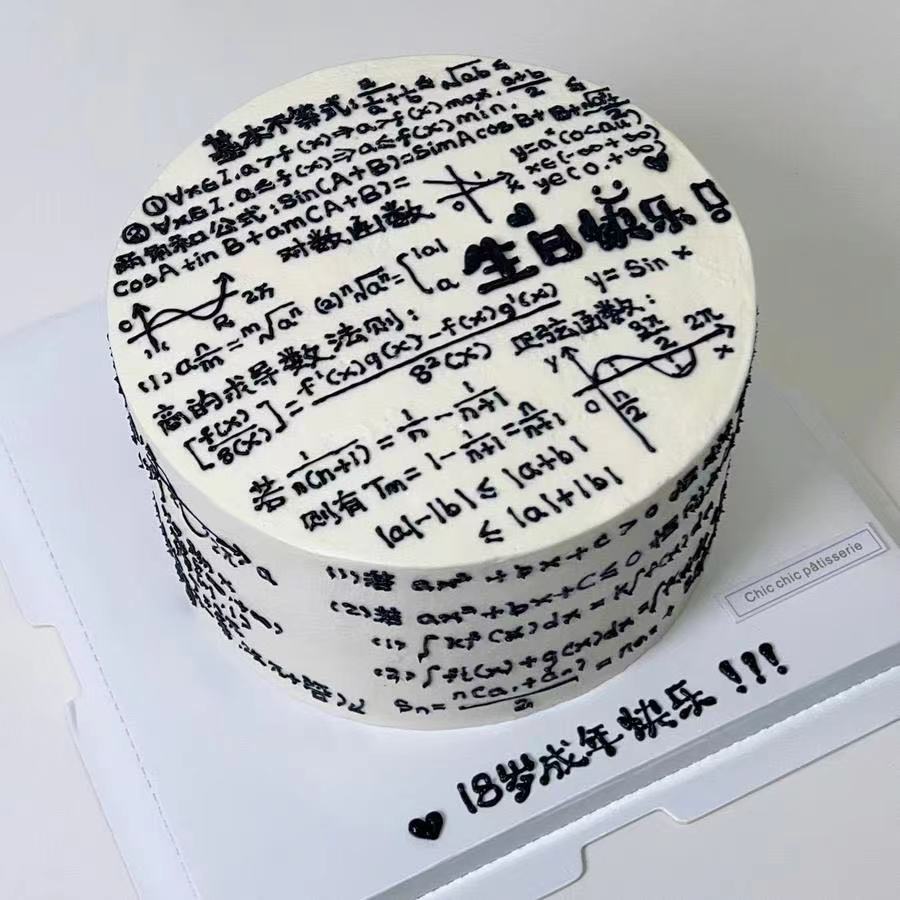 基本不等式: 2/(1/a+1/b) ≤ √ab ≤ (a+b)/2
①∀x∈I.a>f(x)⇒a>f(x)max.
②∀x∈I.a≤f(x)⇒a≤f(x)min.
两角和公式:Sin(A+B)=SimAcosB+
cosA+inB+amCA+B)=
y=aˣ(0<a<1)
x∈(-∞+∞)
y∈(0.+∞)
对数函数
生日快乐!
(1)a n/m = ᵐ√aⁿ (2)ⁿ√aⁿ={|a|
a
y=Sin x
商的求导数法则:
[f(x)/8(x)]=f'(x)g(x)-f(x)g'(x)/8²(x)
正弦函数:
y 3π/2 2π x
0 n/2
若 1/n(n+1) = 1/n - 1/n+1
则有 Tm = 1- 1/n+1 = n/n+1
|a|-|b| ≤ |a+b|
≤ |a|+|b|
(1)若 ax²+bx+c>0
(2)若 ax²+bx+C≤0
(1)∫kf(x)dx = k∫
(2)∫fi(x)+g(x)dx =∫
Sn= n(a₁+an)/2 = na₁+
Chic chic pâtisserie
18岁成年快乐!!!